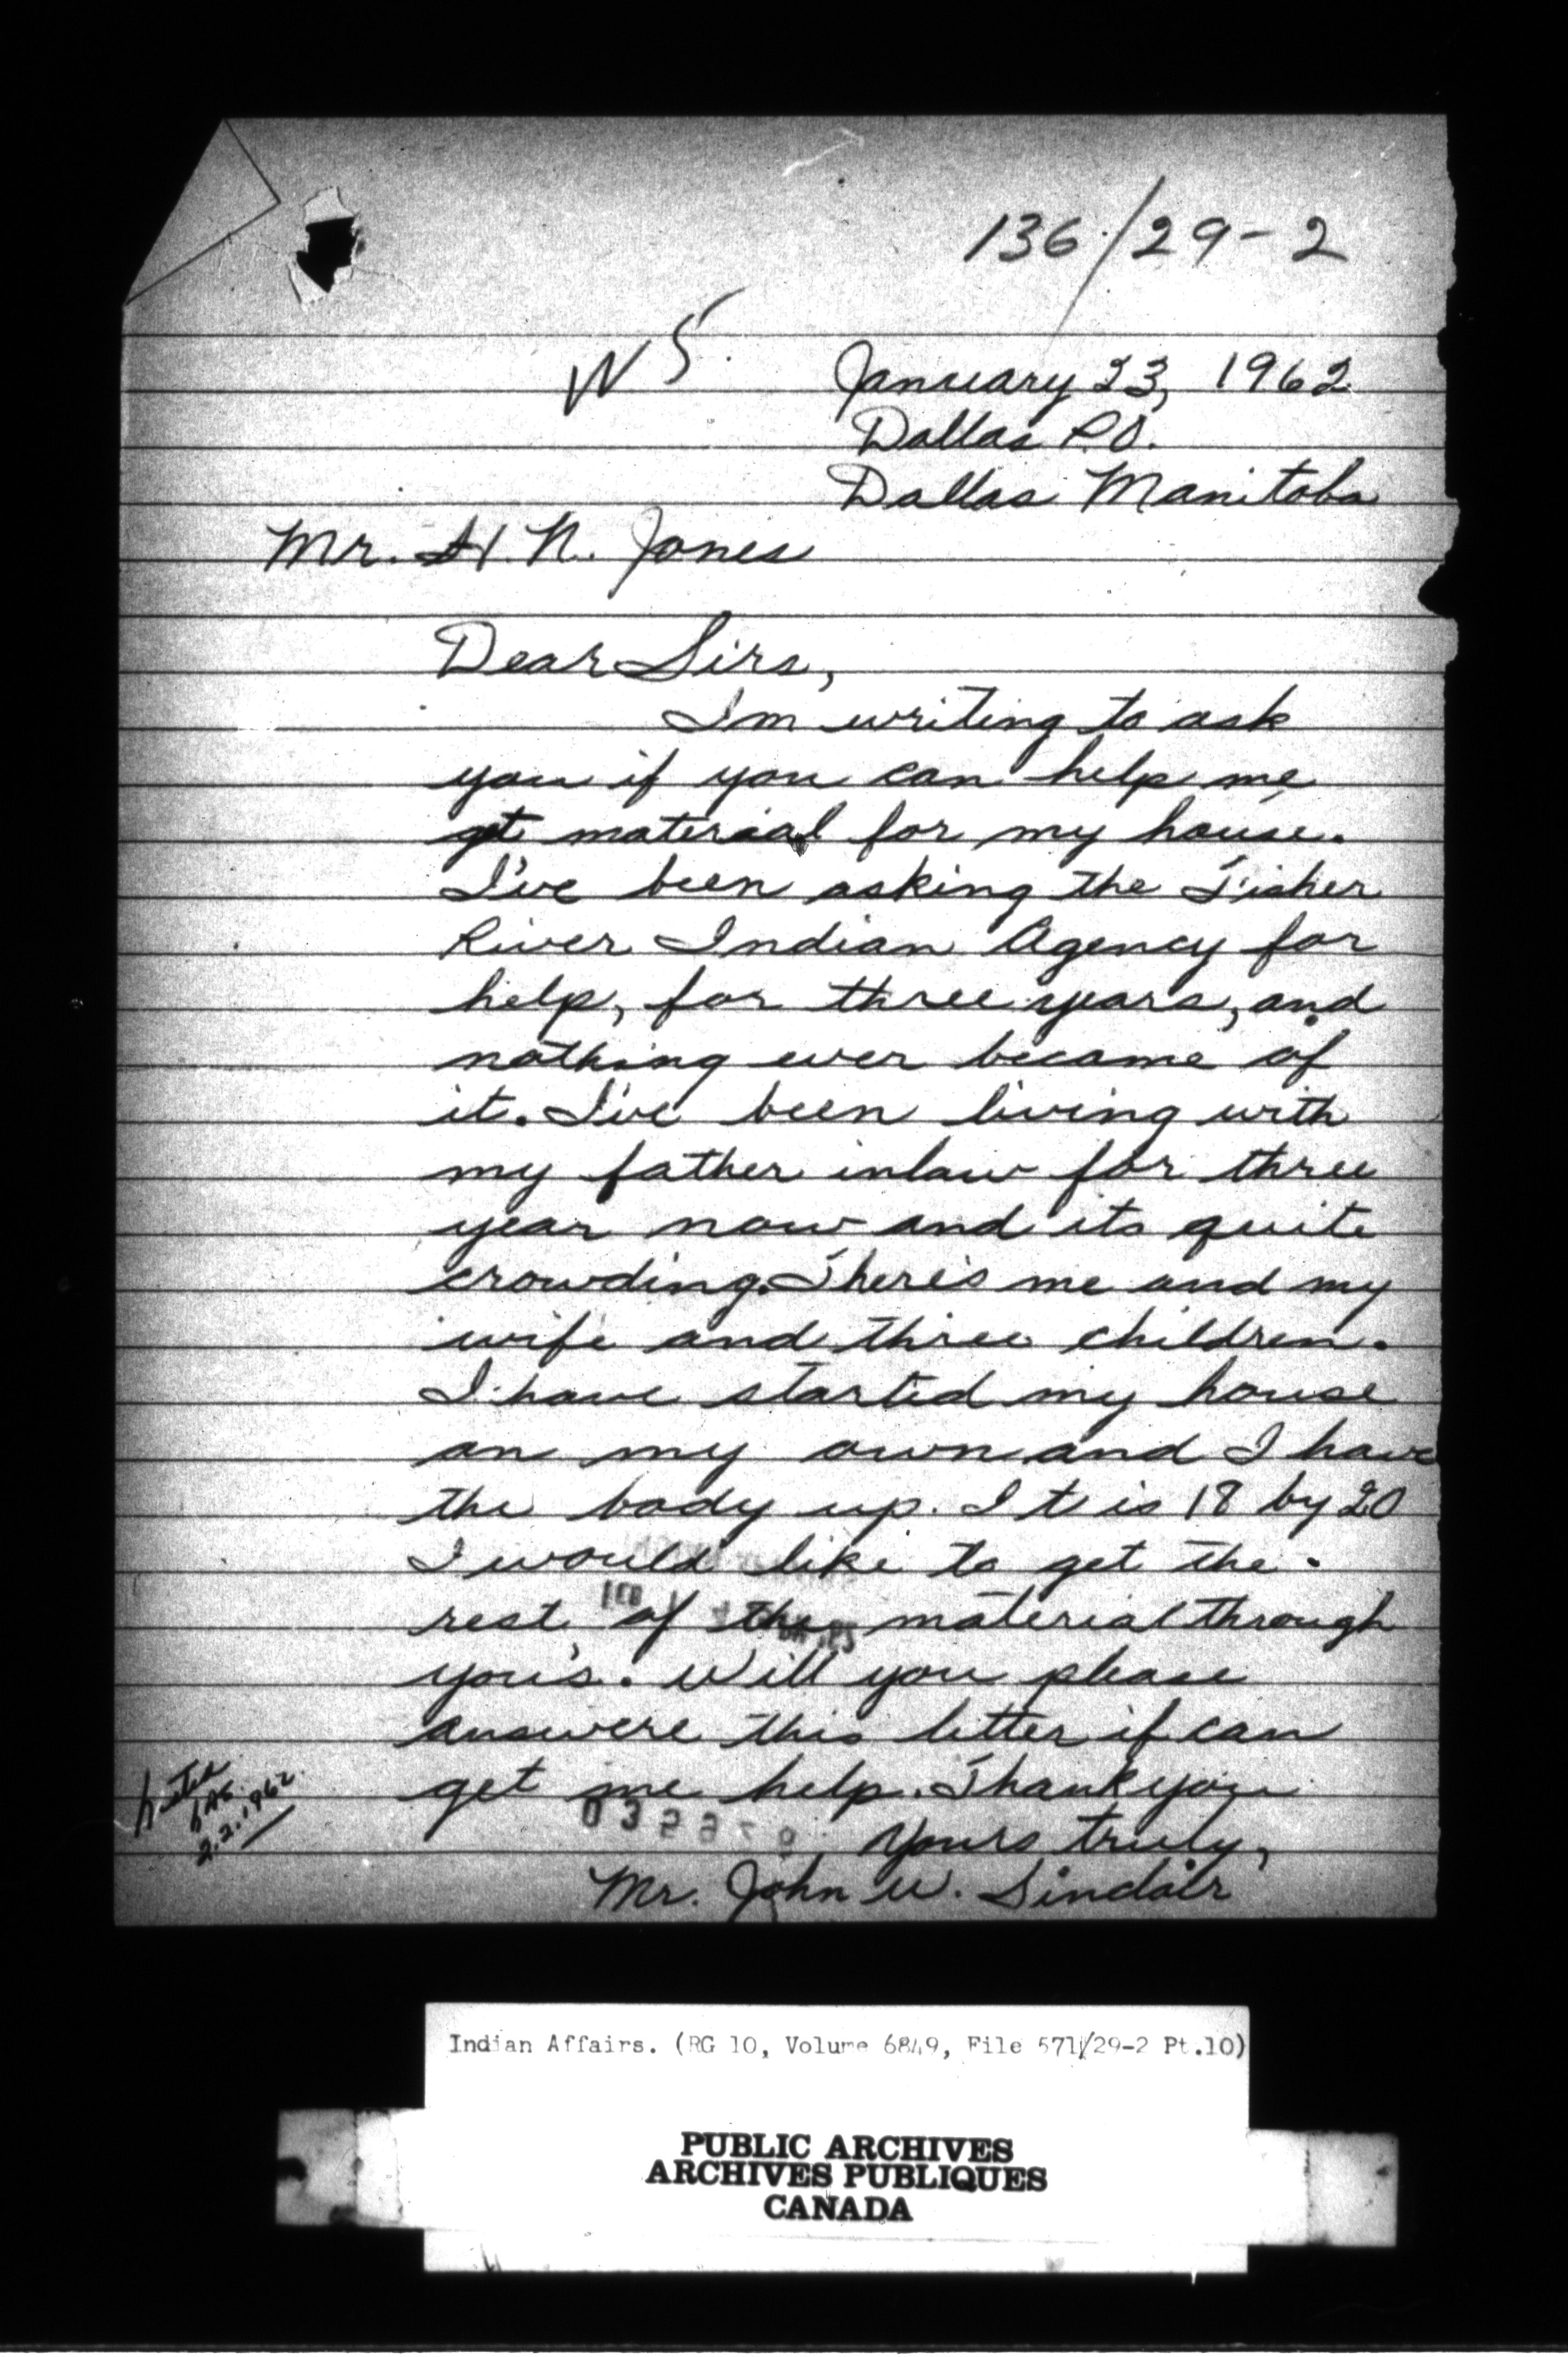 136/29-2
WS.
January 23, 1962
Dallas P.O.
Dallas Manitoba
Mr. H. N. Jones
Dear Sirs,
Im writing to ask
you if you can help me
get material for my house.
I've been asking the Fisher
River Indian Agency for
help, for three years, and
nothing ever became of
it. I've been living with
my father inlaw for three
year now and its quite
crowding. There's me and my
wife and three children.
I have started my house
on my own and I have
the body up. It is 18 by 20
I would like to get the
rest of the material through
you's. Will you please
answere this letter if can
get me help. Thank you
2.2.1962.
Yours truly,
Mr. John W. Sinclair
Indian Affairs. (RG 10, Volume 6849, File 571/29-2 Pt.10)
PUBLIC ARCHIVES
ARCHIVES PUBLIQUES
CANADA